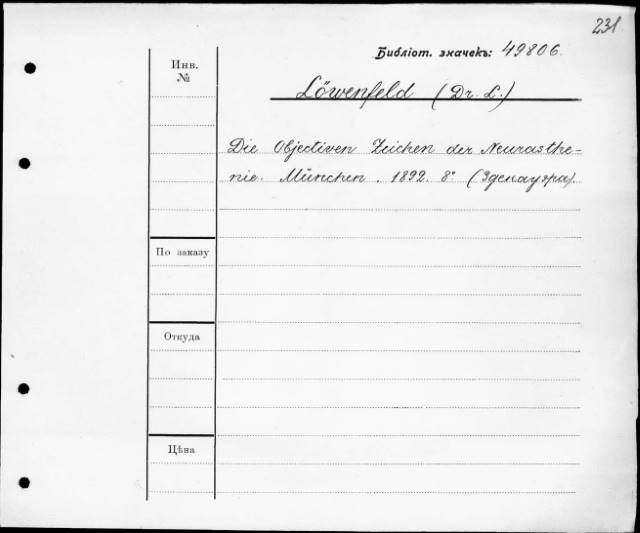 231.
Библіот. значекъ: 49806.
Инв.
№
Löwenfeld (Dr. L.)
Die Objectiven Zeichen der Neurasthe-
nie. München. 1892. 8° (Здекауэра).
По заказу
Откуда
Цѣна